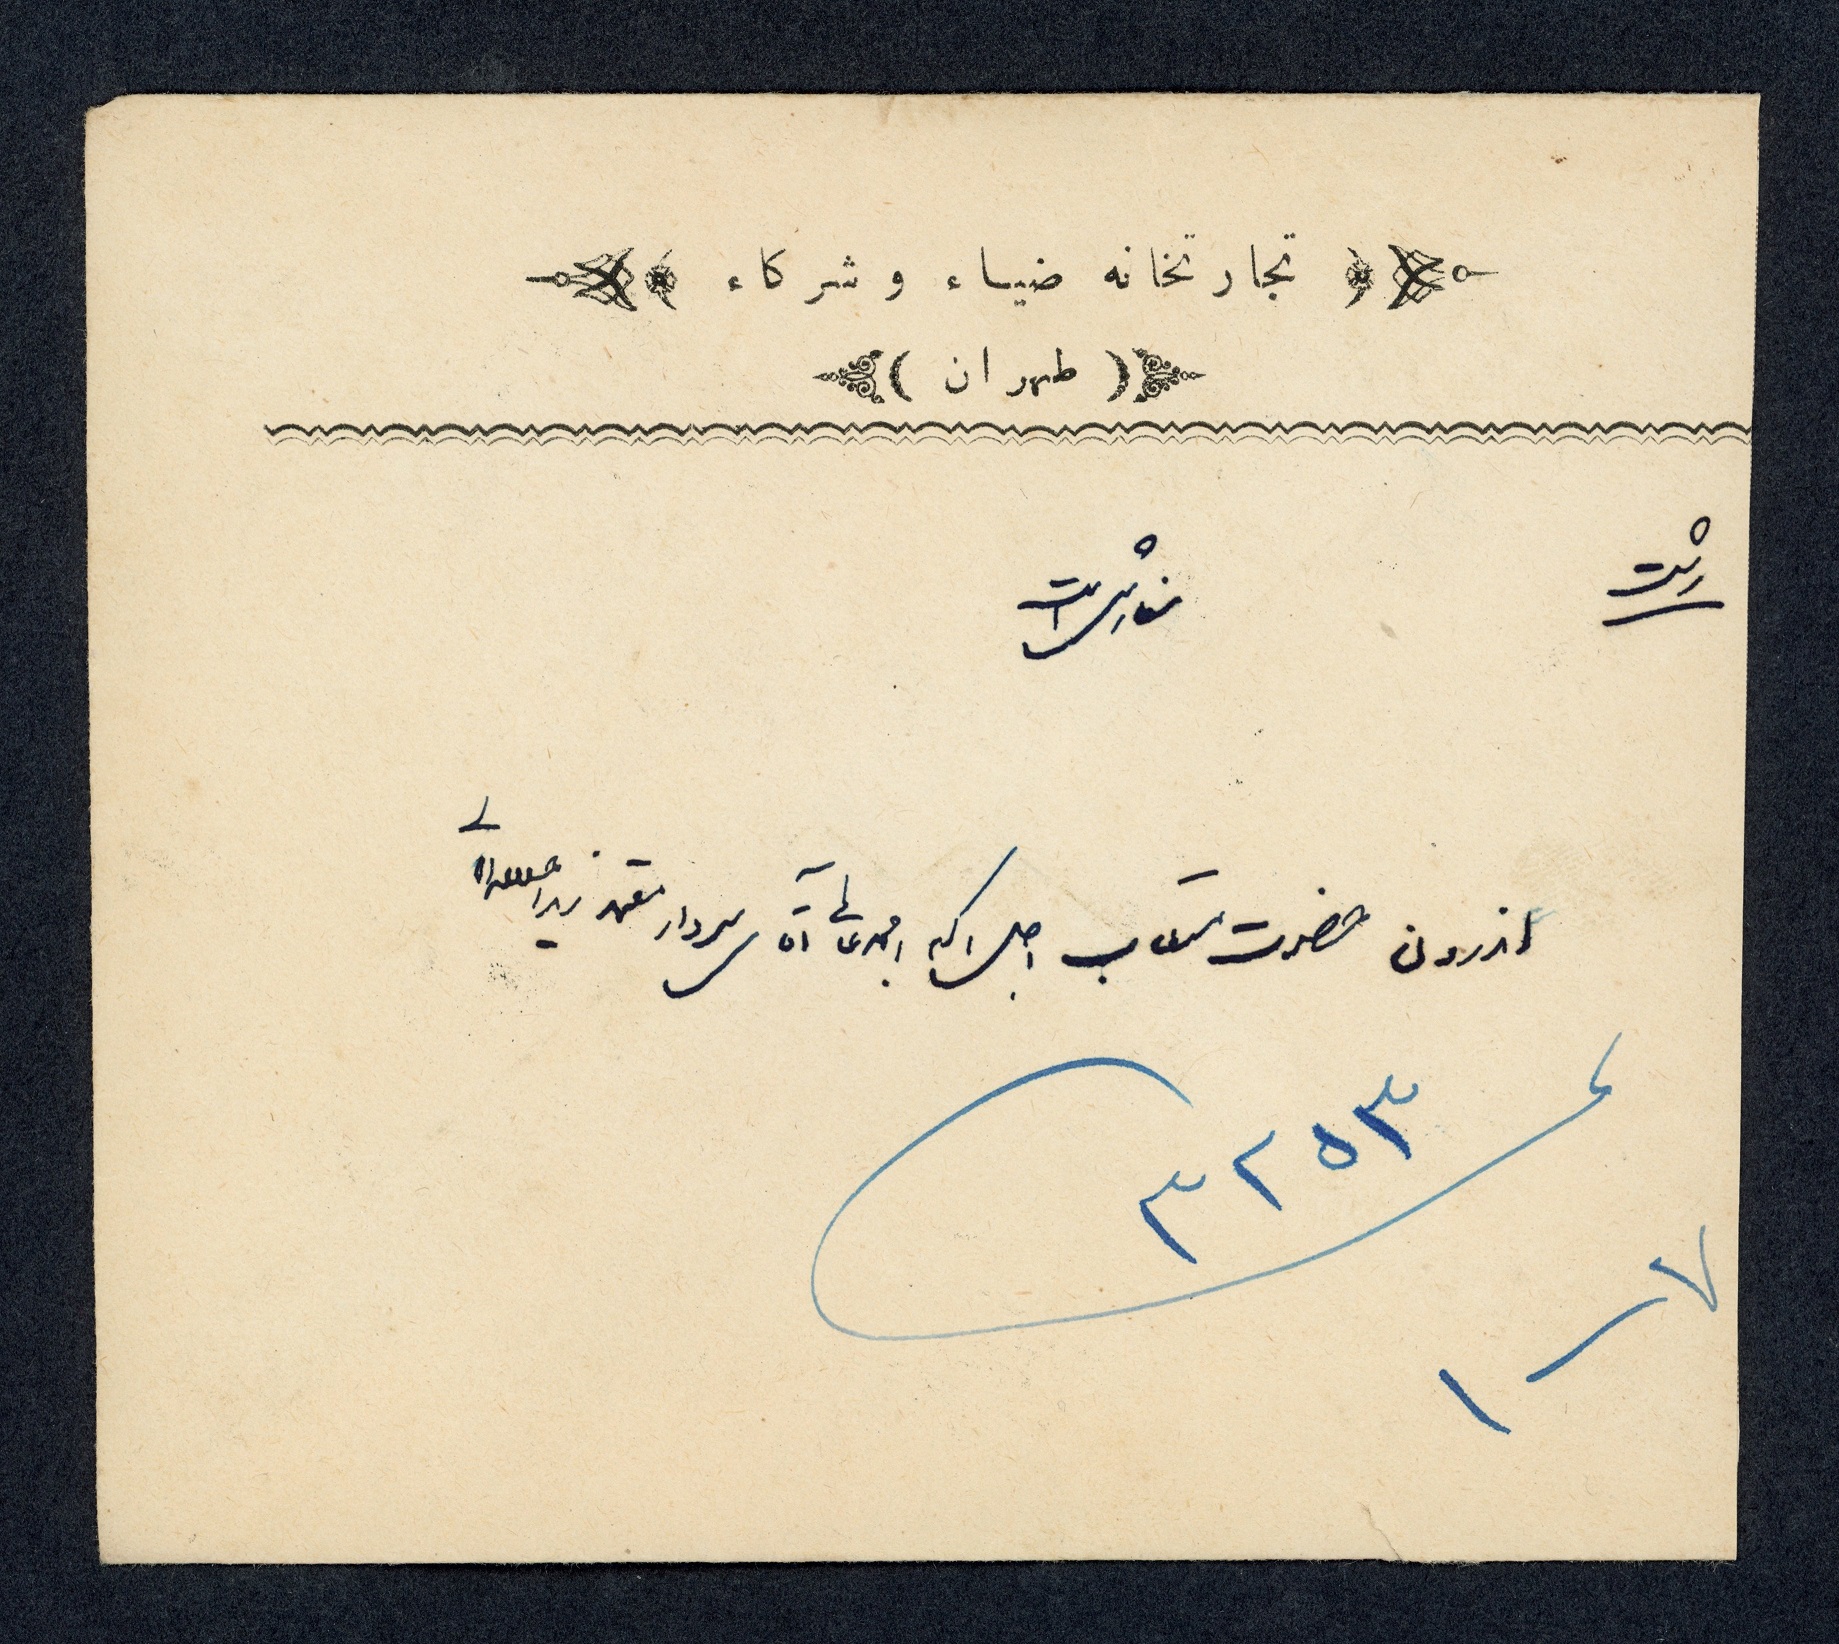 تجارتخانه ضیاء و شرکاء
( طهران )
رشت
سفارشی است
اندرون حضرت مستطاب اجل اکرم امجد عالی آقای سردار معتمد زید اجلاله العالی
۳۲۵۳
۷ - ۱